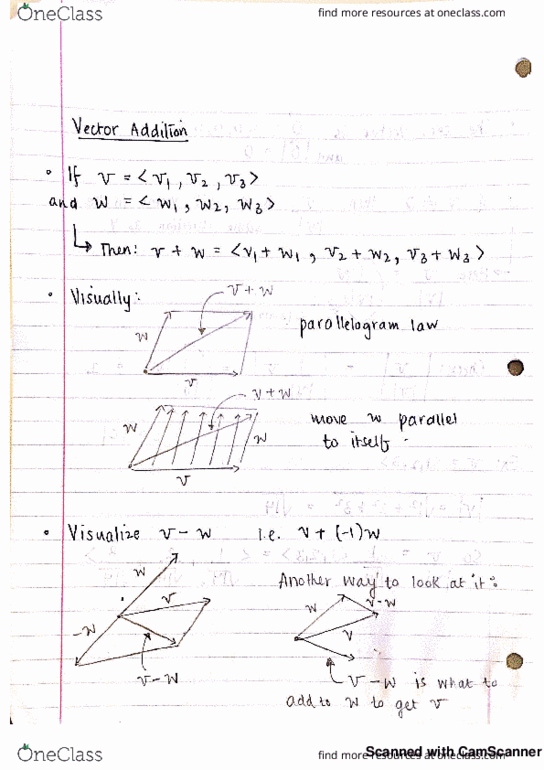 OneClass
find more resources at oneclass.com
Vector Addition
• If v = <v₁, v₂, v₃>
and w = <w₁, w₂, w₃>
↳ Then: v + w = <v₁ + w₁, v₂ + w₂, v₃ + w₃>
• Visually:
v + w
w
v
parallelogram law
v + w
w
w
v
move w parallel
to itself.
• Visualize v - w i.e. v + (-1)w
Another way to look at it:
w
v
-w
v - w
w
v - w
v
v - w is what to
add to w to get v
OneClass
find more resources at oneclass.com
Scanned with CamScanner